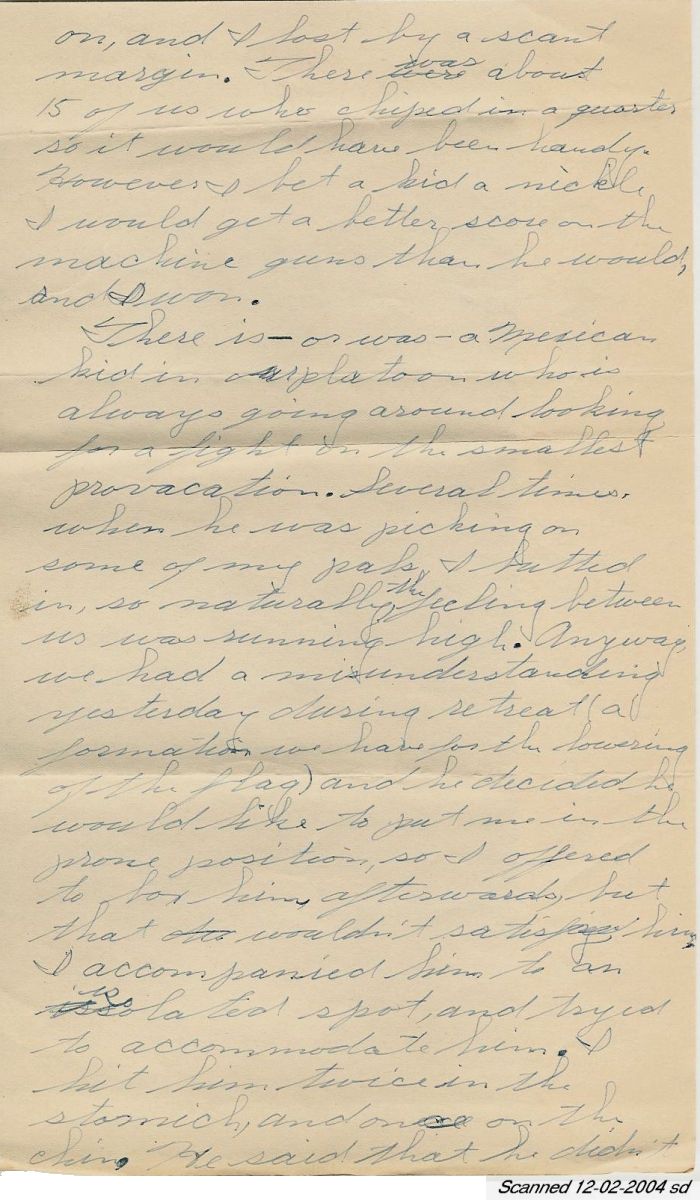 on, and I lost by a scant
margin. There was about
15 of us who chiped in a quarter
so it would have been handy.
However I bet a kid a nickle
I would get a better score on the
machine guns than he would,
and I won.
There is - or was - a Mexican
kid in our platoon who is
always going around looking
for a fight on the smallest
provacation. Several times
when he was picking on
some of my pals, I butted
in, so naturally the feeling between
us was running high. Anyway,
we had a misunderstanding
yesterday during retreat (a
formation we have for the lowering
of the flag) and he decided he
would like to put me in the
prone position, so I offered
to box him, afterwards, but
that wouldn't satisfy him,
I accompanied him to an
isolated spot, and tryed
to accommodate him. I
hit him twice in the
stomich, and once on the
chin. He said that he didn't
Scanned 12-02-2004 sd